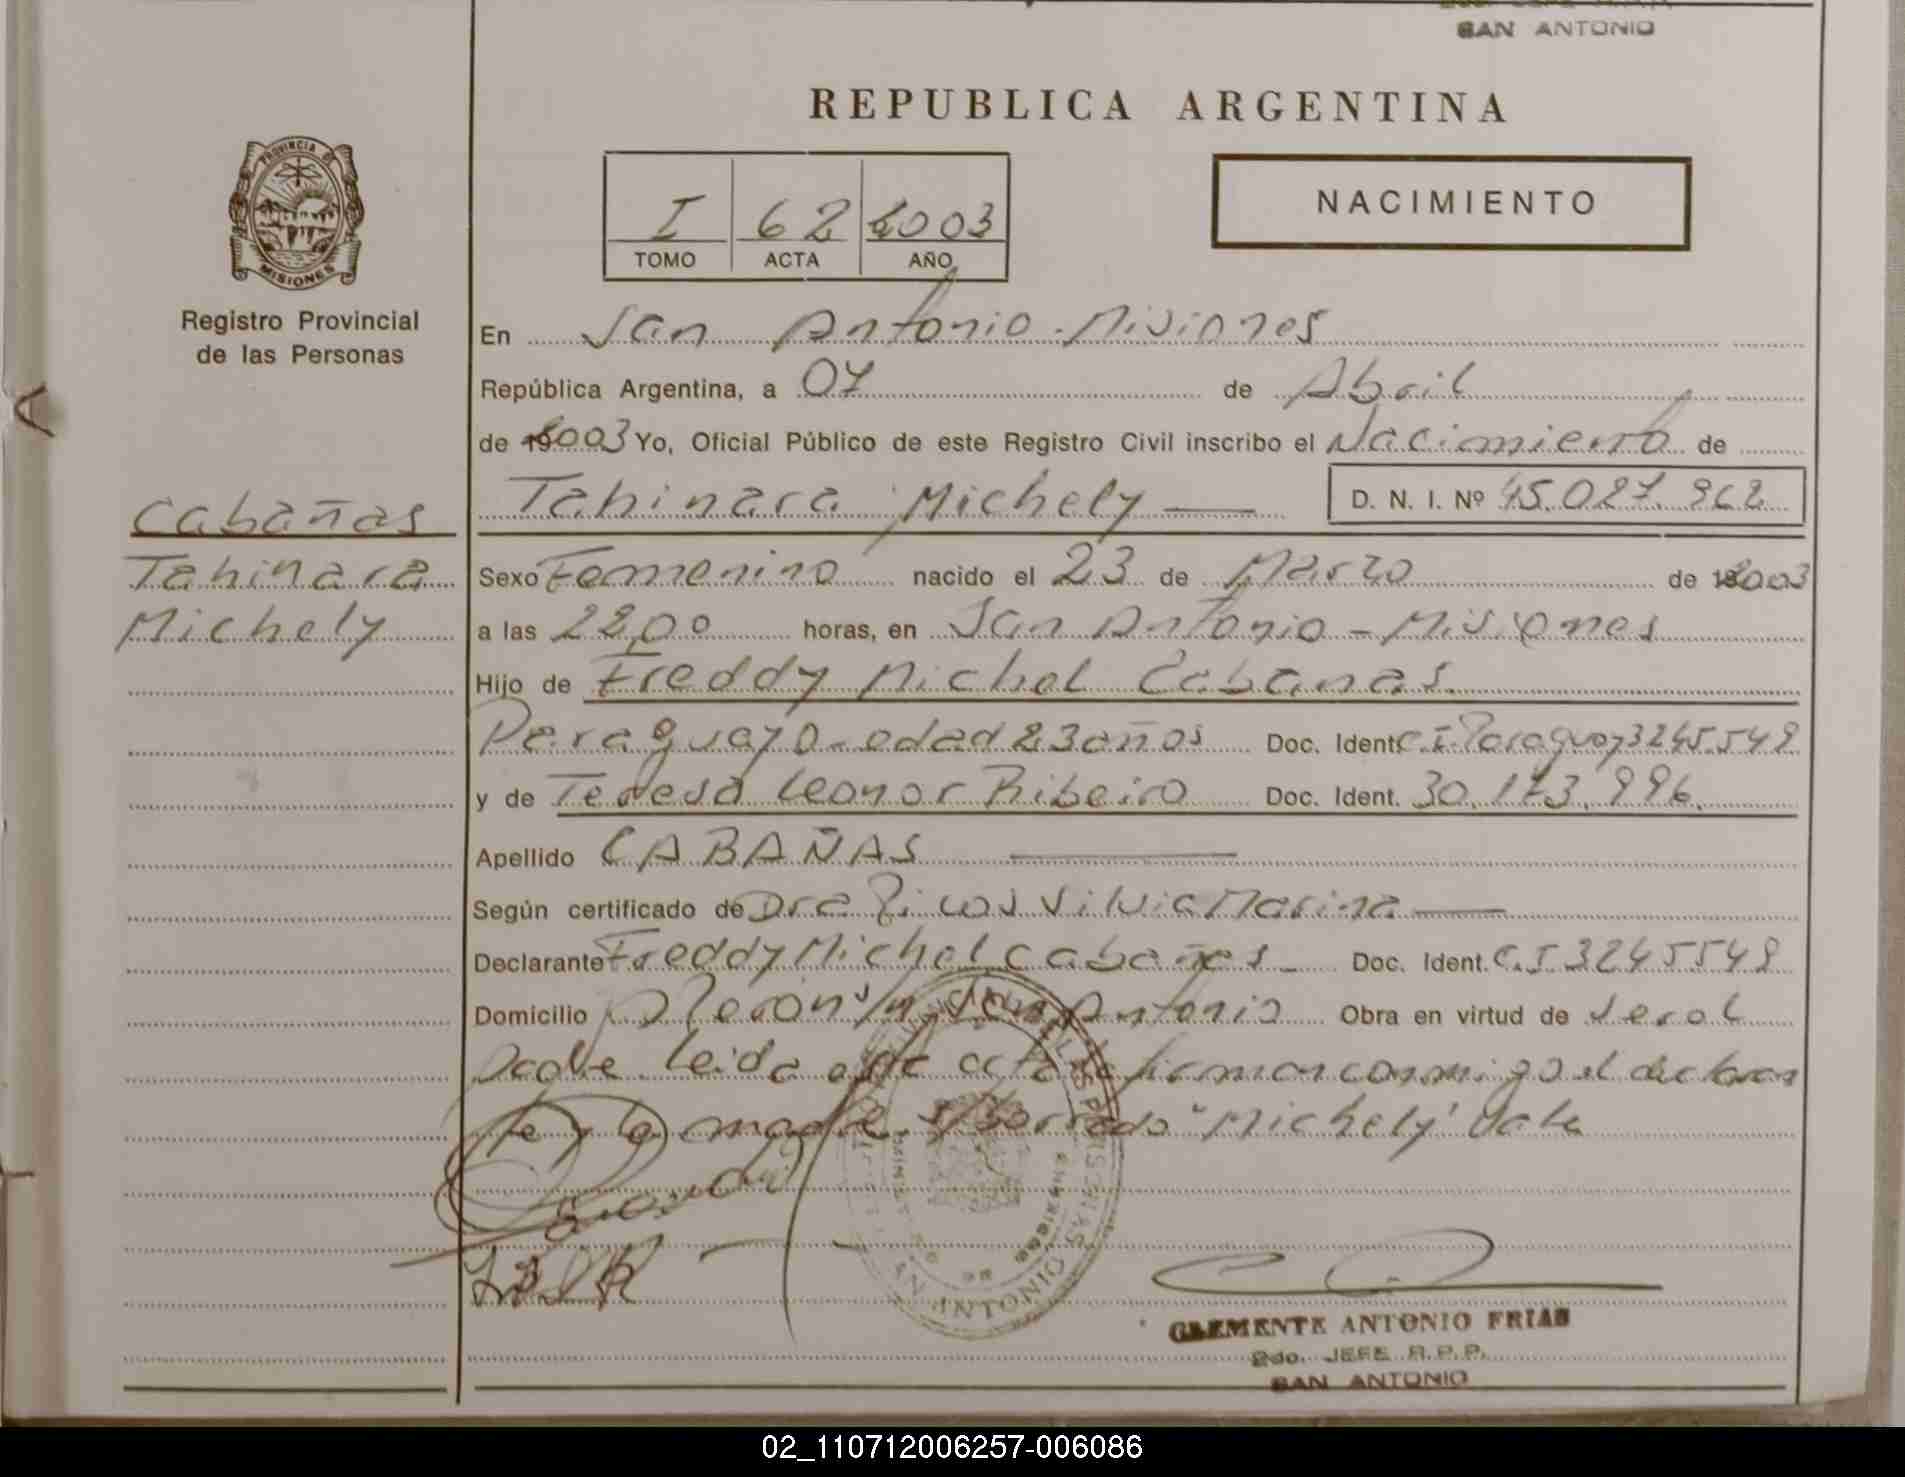 SAN ANTONIO
REPUBLICA ARGENTINA
PROVINCIA DE
MISIONES
Registro Provincial
de las Personas
I 62 2003
TOMO ACTA AÑO
NACIMIENTO
En San Antonio - Misiones
República Argentina, a 07 de Abril
de 2003 Yo, Oficial Público de este Registro Civil inscribo el Nacimiento de
Cabañas
Tahinara
Michely
Tahinara Michely D. N. I. Nº 45.027.962
Sexo Femenino nacido el 23 de Marzo de 2003
a las 22,00 horas, en San Antonio - Misiones
Hijo de Freddy Michel Cabanas
Paraguayo - edad 23 años Doc. Ident. C.I. Paraguay 3245.549
y de Teresa Leonor Ribeiro Doc. Ident. 30.173.996
Apellido CABAÑAS
Según certificado de Dra Silvia Marina
Declarante Freddy Michel Cabañas Doc. Ident. C.I 3245549
Domicilio Perón s/n San Antonio Obra en virtud de ser el
Padre Leida este acta firman conmigo el declaran
te y la madre s/Borrado "Michely" Vale
SAN ANTONIO
CLEMENTE ANTONIO FRIAS
2do. JEFE R.P.P.
SAN ANTONIO
02_110712006257-006086